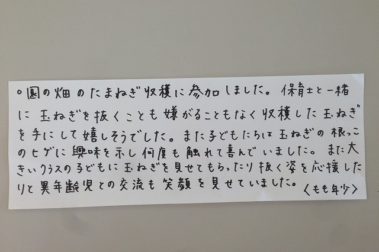 ○園の畑のたまねぎ収穫に参加しました。保育士と一緒
に玉ねぎを抜くことも嫌がることもなく収穫した玉ねぎ
を手にして嬉しそうでした。また子どもたちは玉ねぎの根っこ
のヒゲに興味を示し何度も触れて喜んでいました。また大
きいクラスの子どもに玉ねぎを見せてもらったり抜く姿を応援した
りと異年齢児との交流も笑顔を見せていました。〈もも年少〉